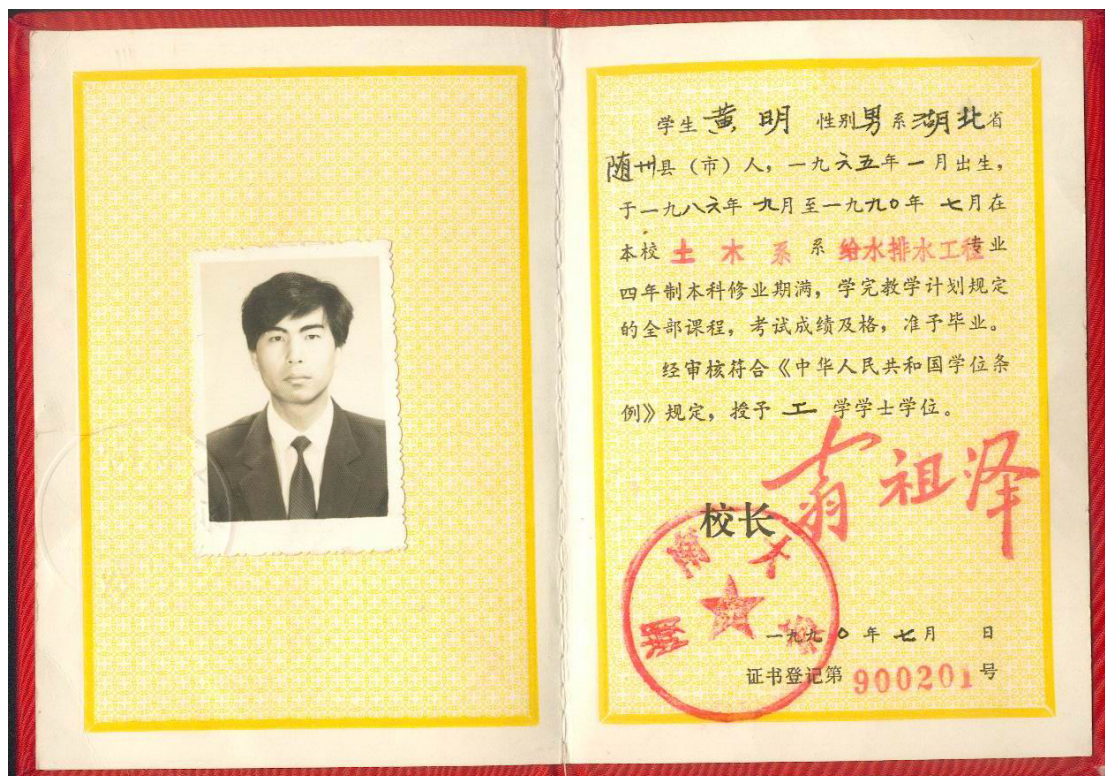 学生 黄明 性别男系湖北省
随州县（市）人，一九六五年一月出生，
于一九八六年九月至一九九〇年七月在
本校土木系系给水排水工程专业
四年制本科修业期满，学完教学计划规定
的全部课程，考试成绩及格，准予毕业。
经审核符合《中华人民共和国学位条
例》规定，授予工学学士学位。
校长 翁祖泽
湖南大学
一九九〇年七月 日
证书登记第900201号